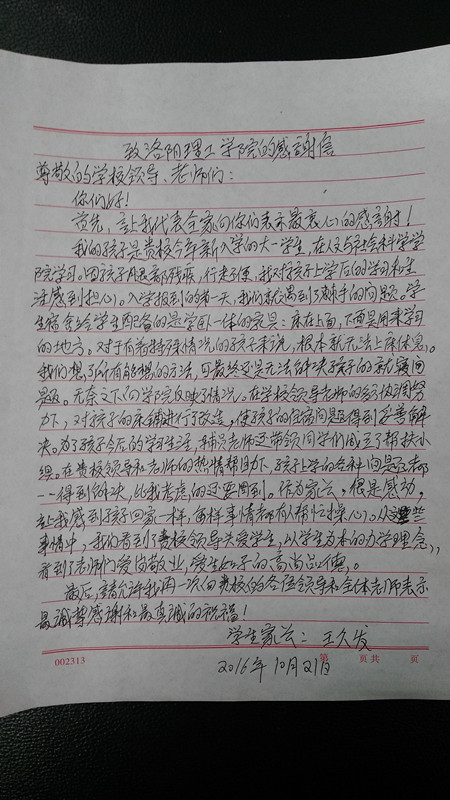 致洛阳理工学院的感谢信
尊敬的学校领导、老师们：
你们好！
首先，让我代表全家向你们表示最衷心的感谢！
我的孩子是贵校今年新入学的大一学生，在人文与社会科学学
院学习。因孩子腿部残疾，行走不便，我对孩子上学后的学习和生
活感到担心。入学报到的第一天，我们就遇到了棘手的问题。学
生宿舍给学生配备的是学卧一体的家具：床在上面，下面是用来学习
的地方。对于有着特殊情况的孩子来说，根本就无法上床休息。
我们想了所有能想的方法，可最终还是无法解决孩子的就寝问
题。无奈之下向学院反映了情况。在学校领导老师的多方协调努
力下，对孩子的床铺进行了改造，使孩子的住宿问题得到妥善解
决。为了孩子今后的学习生活，老师还带领同学们成立了帮扶小
组。在贵校领导和老师的热情帮助下，孩子上学的各种问题都
一一得到解决，比我考虑的还要周到。作为家长，很是感动，
让我感到孩子回家一样，每样事情都有人帮忙操心。从这些
事情中，我们看到了贵校领导关爱学生，以学生为本的办学理念，
看到了老师们爱岗敬业，爱生如子的高尚品德。
最后，请允许我再一次向贵校的各位领导和全体老师表示
最诚挚感谢和最真诚的祝福！
学生家长：王久发
2016年10月21日
002313 第 页共 页